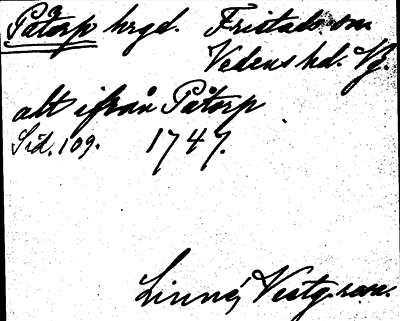 Påtorp hrgd. Fristads sn.
Vedens hd. Vg.
alt ifrån Påtorp
Sid. 109. 1747.
Linné, Vestg. resa.